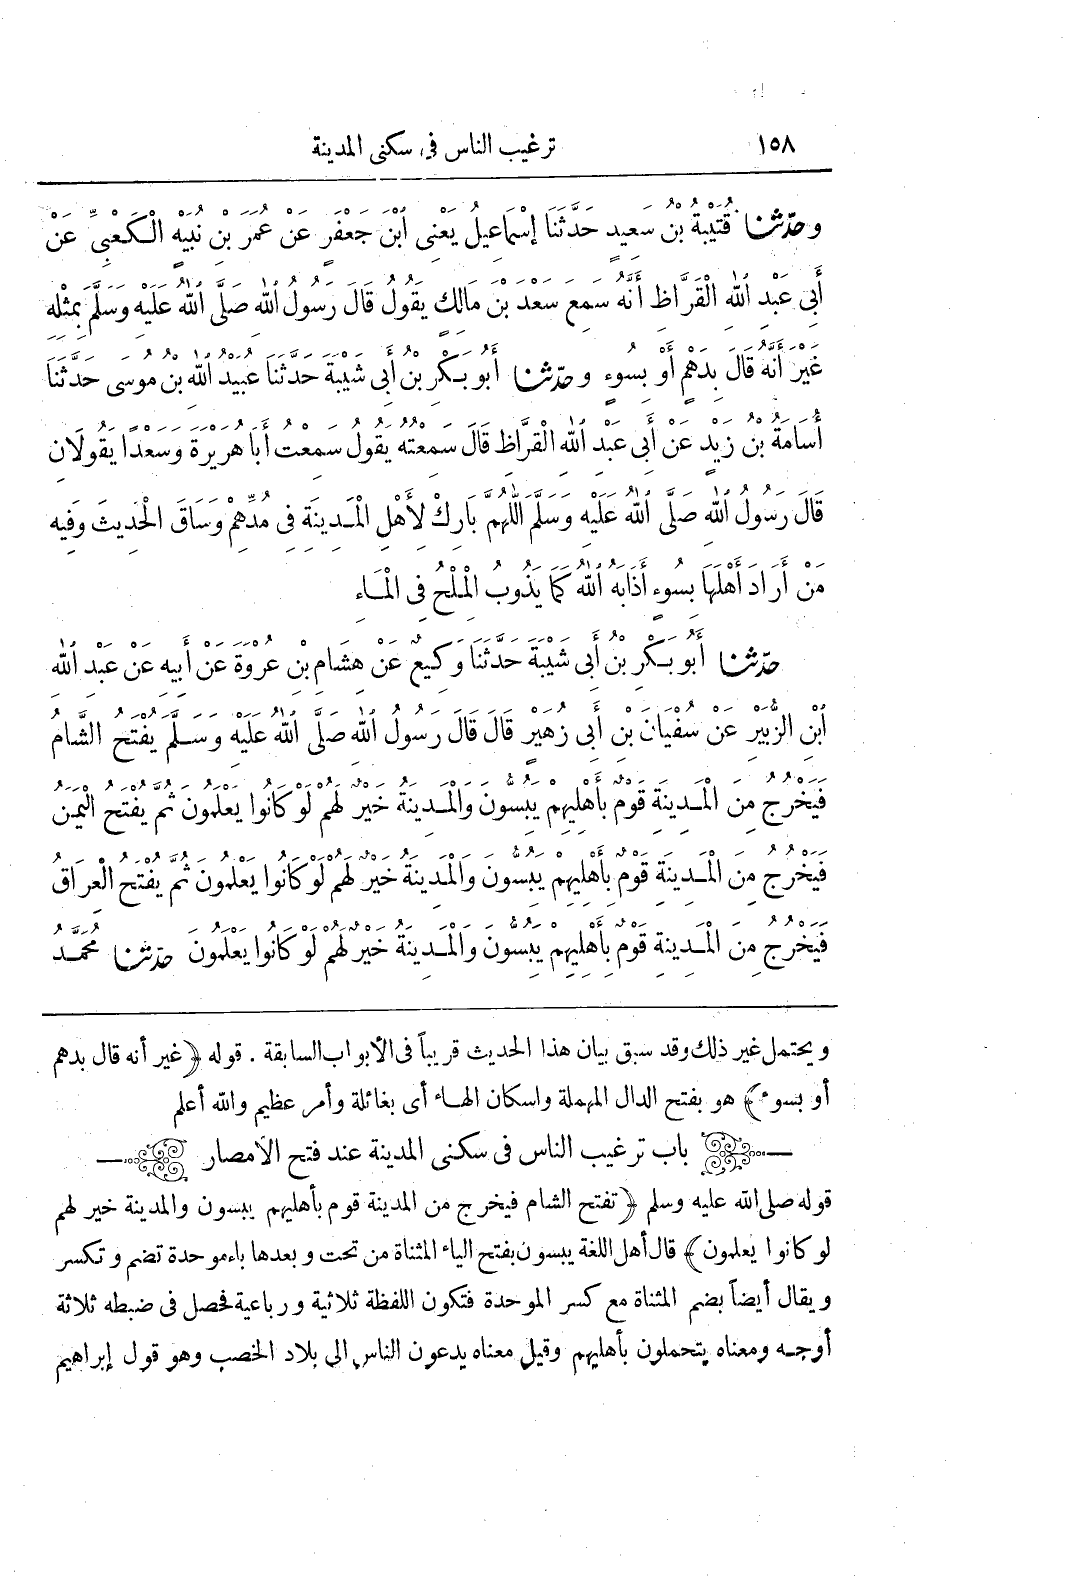 ١٥٨ ترغيب الناس فى سكنى المدينة
وحَدَّثَنَا قُتَيْبَةُ بْنُ سَعِيدٍ حَدَّثَنَا إِسْمَاعِيلُ يَعْنِى ابْنَ جَعْفَرٍ عَنْ عُمَرَ بْنِ نُبَيْهٍ الْكَعْبِىِّ عَنْ
أَبِى عَبْدِ اللهِ الْقَرَّاظِ أَنَّهُ سَمِعَ سَعْدَ بْنَ مَالِكٍ يَقُولُ قَالَ رَسُولُ اللهِ صَلَّى اللهُ عَلَيْهِ وَسَلَّمَ بِمِثْلِهِ
غَيْرَ أَنَّهُ قَالَ بِدَهْمٍ أَوْ بِسُوءٍ وحَدَّثَنَا أَبُو بَكْرِ بْنُ أَبِى شَيْبَةَ حَدَّثَنَا عُبَيْدُ اللهِ بْنُ مُوسَى حَدَّثَنَا
أُسَامَةُ بْنُ زَيْدٍ عَنْ أَبِى عَبْدِ اللهِ الْقَرَّاظِ قَالَ سَمِعْتُهُ يَقُولُ سَمِعْتُ أَبَا هُرَيْرَةَ وَسَعْدًا يَقُولَانِ
قَالَ رَسُولُ اللهِ صَلَّى اللهُ عَلَيْهِ وَسَلَّمَ اللّٰهُمَّ بَارِكْ لِأَهْلِ الْمَدِينَةِ فِى مُدِّهِمْ وَسَاقَ الْحَدِيثَ وَفِيهِ
مَنْ أَرَادَ أَهْلَهَا بِسُوءٍ أَذَابَهُ اللهُ كَمَا يَذُوبُ الْمِلْحُ فِى الْمَاءِ
حَدَّثَنَا أَبُو بَكْرِ بْنُ أَبِى شَيْبَةَ حَدَّثَنَا وَكِيعٌ عَنْ هِشَامِ بْنِ عُرْوَةَ عَنْ أَبِيهِ عَنْ عَبْدِ اللهِ
ابْنِ الزُّبَيْرِ عَنْ سُفْيَانَ بْنِ أَبِى زُهَيْرٍ قَالَ قَالَ رَسُولُ اللهِ صَلَّى اللهُ عَلَيْهِ وَسَلَّمَ يُفْتَحُ الشَّامُ
فَيَخْرُجُ مِنَ الْمَدِينَةِ قَوْمٌ بِأَهْلِيهِمْ يَبُسُّونَ وَالْمَدِينَةُ خَيْرٌ لَهُمْ لَوْ كَانُوا يَعْلَمُونَ ثُمَّ يُفْتَحُ الْيَمَنُ
فَيَخْرُجُ مِنَ الْمَدِينَةِ قَوْمٌ بِأَهْلِيهِمْ يَبُسُّونَ وَالْمَدِينَةُ خَيْرٌ لَهُمْ لَوْ كَانُوا يَعْلَمُونَ ثُمَّ يُفْتَحُ الْعِرَاقُ
فَيَخْرُجُ مِنَ الْمَدِينَةِ قَوْمٌ بِأَهْلِيهِمْ يَبُسُّونَ وَالْمَدِينَةُ خَيْرٌ لَهُمْ لَوْ كَانُوا يَعْلَمُونَ حَدَّثَنَا مُحَمَّدُ
ويحتمل غير ذلك وقد سبق بيان هذا الحديث قريباً فى الأبواب السابقة . قوله ﴿غير أنه قال بدهم
أو بسوء﴾ هو بفتح الدال المهملة واسكان الهاء أى بغائلة وأمر عظيم والله أعلم
باب ترغيب الناس فى سكنى المدينة عند فتح الأمصار
قوله صلى الله عليه وسلم ﴿تفتح الشام فيخرج من المدينة قوم بأهليهم يبسون والمدينة خير لهم
لو كانوا يعلمون﴾ قال أهل اللغة يبسون بفتح الياء المثناة من تحت وبعدها باء موحدة تضم وتكسر
ويقال أيضاً بضم المثناة مع كسر الموحدة فتكون اللفظة ثلاثية ورباعية فحصل فى ضبطه ثلاثة
أوجه ومعناه يتحملون بأهليهم وقيل معناه يدعون الناس الى بلاد الخصب وهو قول إبراهيم